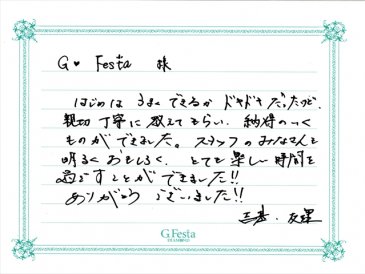 G♥Festa 様
はじめは うまく できるか ドキドキ だったけど、
親切 丁寧に 教えて もらい、納得の いく
ものが できました。スタッフの みなさんも
明るく おもしろく、とても 楽しい 時間を
過ごす ことが できました!!
ありがとう ございました!!
G.Festa